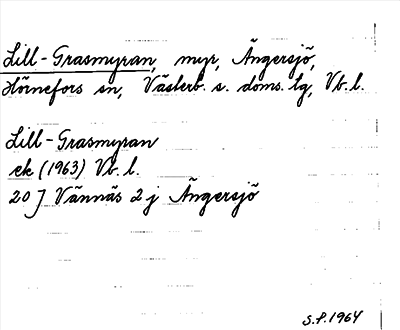 Lill-Grasmyran, myr, Ängersjö,
Hörnefors sn, Västerb. s. doms. tg, Vb. l.
Lill-Grasmyran
ek (1963) Vb. l.
20 J Vännäs 2 j Ängersjö
S.P. 1964